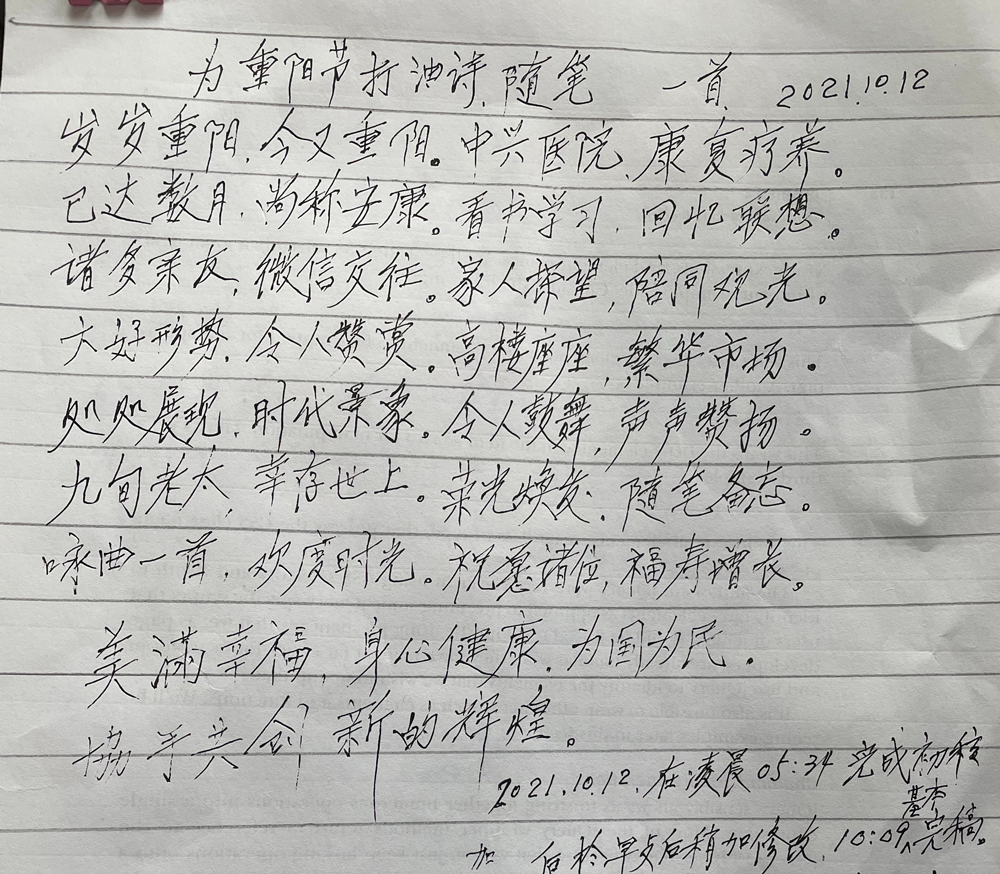 为重阳节打油诗随笔 一首 2021.10.12
岁岁重阳,今又重阳。中兴医院,康复疗养。
已达数月,尚称安康。看书学习,回忆联想。
诸多亲友,微信交往。家人探望,陪同观光。
大好形势,令人赞赏。高楼座座,繁华市场。
处处展现,时代景象。令人鼓舞,声声赞扬。
九旬老太,幸存世上。荣光焕发,随笔备忘。
咏曲一首,欢度时光。祝愿诸位,福寿增长。
美满幸福,身心健康。为国为民。
协手共创新的辉煌。
2021.10.12.在凌晨05:34完成初稿
加 后于早点后稍加修改,10:09基本完稿。